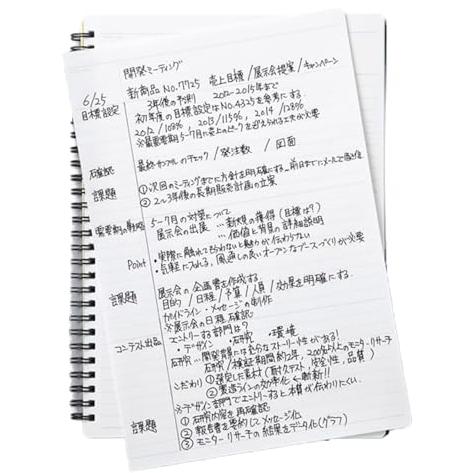 開発ミーティング
6/25 新商品No.7725 売上目標/展示会提案/キャンペーン
目標設定 3年後の予測 2012-2015年まで
初年度の目標設定はNo.4325を参考にする
2012/108% 2013/115% 2014/128%
※最需要期5-7月に売上のピークを迎えられる工夫が必要
再確認 最終サンプルのチェック/発注数/図面
課題 ①次回のミーティングまでに方針を明確にする…前日までにメールで
②2~3年後の長期販売計画の立案
需要期の戦略 5-7月の対策について
展示会の出展 …新規の獲得(目標は?)
…価値と背景の詳細説明
Point ・実際に触れてもらわないと魅力が伝わらない
・気軽に入れる、風通しの良いオープンなブースづくりが必要
課題 展示会の企画書を作成する
目的/日程/予算/人員/効果を明確にする.
ガイドライン・メッセージの制作
※展示会の日程確認
コンテスト出品 エントリーする部門は?
・デザイン ・研究 ・環境
研究…開発背景には充分なストーリー性がある!
研究/検証期間約2年、200名以上のモニターリサーチ
こだわり ①選定した素材(耐久テスト、安全性、品質)
②製造ラインの効率化と断新!!
※デザイン部門でエントリーすると本質が伝わりにくい.
課題 ①研究内容を再確認
②報告書を要約してメッセージ化
③モニターリサーチの結果をデータ化(グラフ)